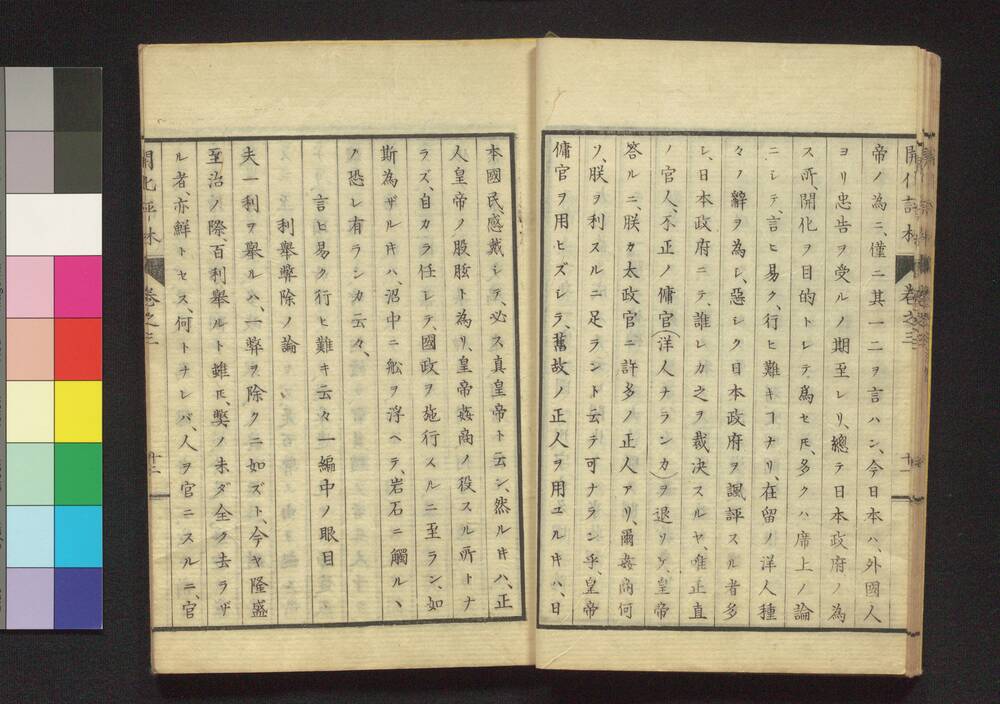 開化評林 卷之三 十一
帝ノ為ニ、僅ニ其一二ヲ言ハン、今日本ハ、外國人
ヨリ忠告ヲ受ルノ期至レリ、總テ日本政府ノ為
ス所、開化ヲ目的トシテ為セ𪜈、多クハ席上ノ論
ニシテ、言ヒ易ク、行ヒ難キヿナリ、在留ノ洋人種
々ノ辭ヲ為シ、惡シク日本政府ヲ諷評スル者多
シ、日本政府ニテ、誰レカ之ヲ裁决スルヤ、唯正直
ノ官人、不正ノ傭官(洋人ナランカ)ヲ退ソケ、皇帝
答ルニ、朕カ太政官ニ許多ノ正人アリ、爾姦商何
ソ、朕ヲ利スルニ足ラント云テ可ナラン乎、皇帝
傭官ヲ用ヒズシテ、舊故ノ正人ヲ用ユルキハ、日
本國民、感戴シテ、必ス真皇帝ト云ン、然ル𪜈ハ、正
人皇帝ノ股肱ト為リ、皇帝姦商ノ役スル所トナ
ラズ、自カラ任シテ、國政ヲ施行スルニ至ラン、如
斯為ザル𪜈ハ、沼中ニ舩ヲ浮ヘテ、岩石ニ觸ルヽ
ノ恐レ有ラシカ云々、
言ヒ易ク行ヒ難キ云々一編中ノ眼目
利舉弊除ノ論
夫一利ヲ舉ルハ、一弊ヲ除クニ如ズト、今ヤ隆盛
至治ノ際、百利舉ルト雖𪜈、獘ノ未ダ全ク去ラザ
ル者、亦鮮トセス、何トナレバ、人ヲ官ニスルニ、官
開化評林 卷之三 十二